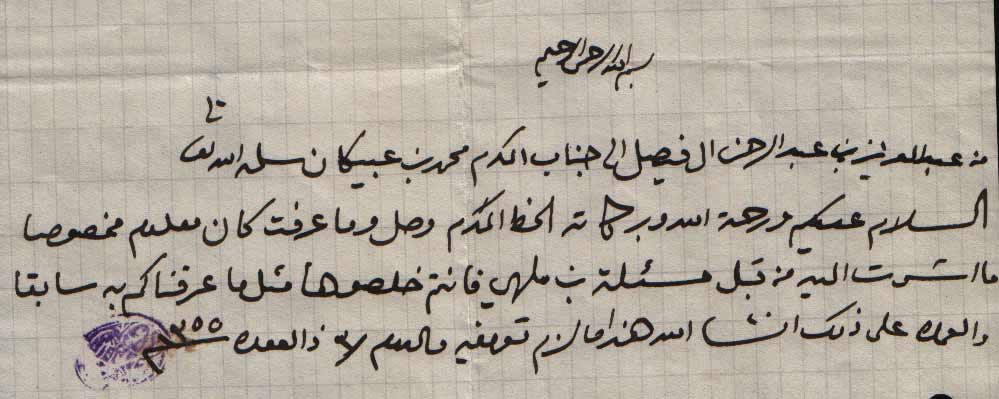 بسم الله الرحمن الرحيم
من عبدالعزيز بن عبدالرحمن ال فيصل الى جناب المكرم محمد بن عبيكان سلمه الله تعالى
السلام عليكم ورحمة الله وبركاته الخط المكرم وصل وما عرفت كان معلوم مخصوصا
ما اشرت اليه من قبل مسئلة بن ملهي فانتم خلصوها مثل ما عرفناكم به سابقا
والعمده على ذلك انشا الله هذا ما لزم تعريفه والسلام ذ القعده ١٣٥٥